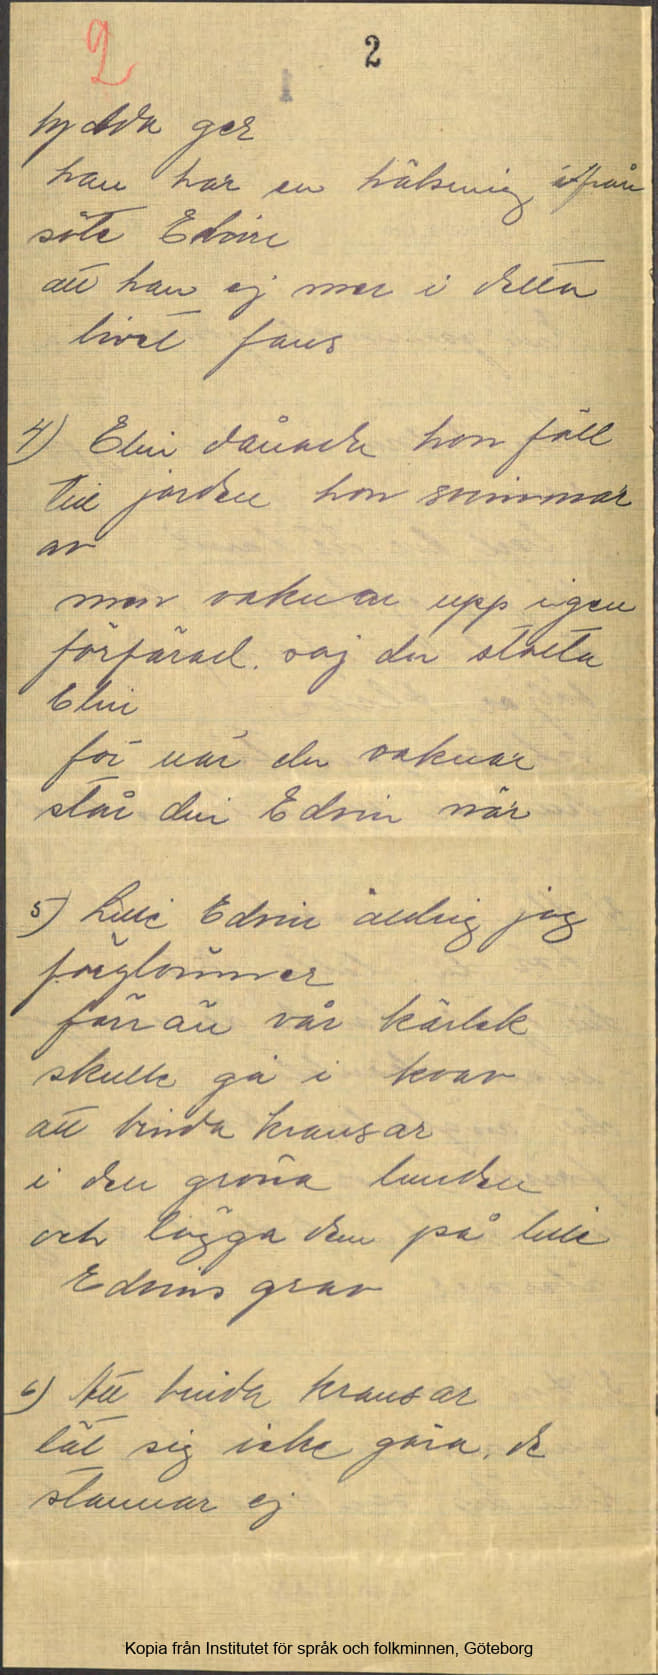 2
2
hydda ger
han har en hälsning ifrån
söte Edvin
att han ej mer i detta
livet fans
4) Elin dånade hon föll
till jorden hon svimmar
av
men vaknar upp igen
förfärad. saj du stolta
Elin
för när du vaknar
står din Edvin när
5) Lille Edvin aldrig jag
förglömmer
förr än vår kärlek
skulle gå i kvav
att binda kransar
i den gröna lunden
och lägga dem på lille
Edvins grav
6) Att binda kransar
låt sig icke göra. de
stannar ej
Kopia från Institutet för språk och folkminnen, Göteborg